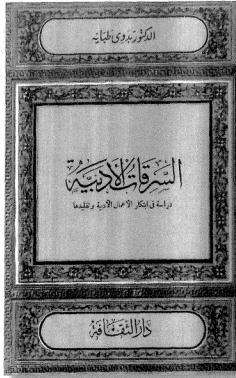 الدكتور بدوى طبانه
السرقات الأدبية
دراسة فى ابتكار الأعمال الأدبية وتقليدها
دار الثقافة